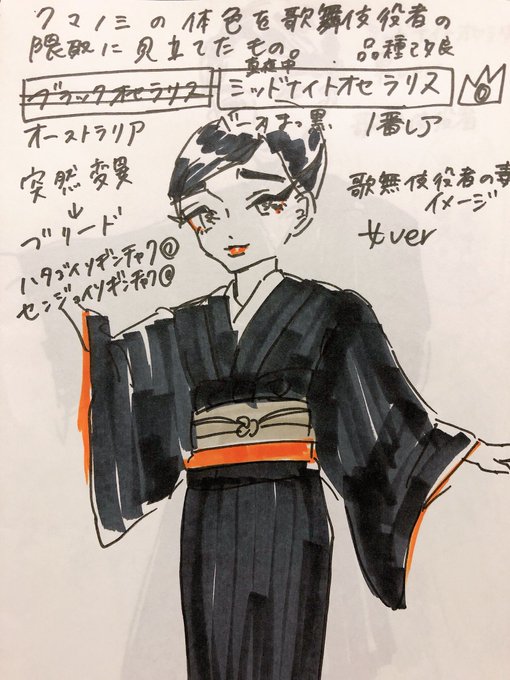 クマノミの体色を歌舞伎役者の
隈取に見立てたもの。 品種改良
真夜中
ブラックオセラリス ミッドナイトオセラリス
オーストラリア 黒 1番レア
突然変異
↓
ブリード
歌舞伎役者の妻
イメージ
女ver
ハタゴイソギンチャク
センジュイソギンチャク